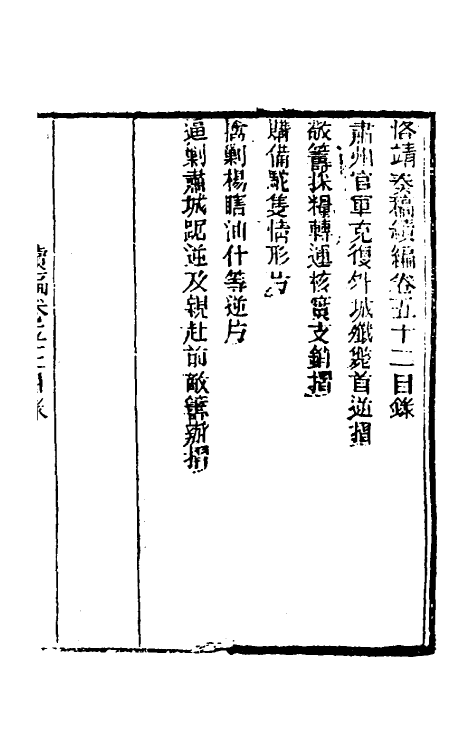 恪靖奏稿續編卷五十二目錄
肅州官軍克復外城殲斃首逆摺
敬籌採糧轉運核實支銷摺
購備駝隻情形片
擒剿楊瞎油什等逆片
逼剿肅城踞逆及親赴前敵籌辦摺
續編卷五十二目錄